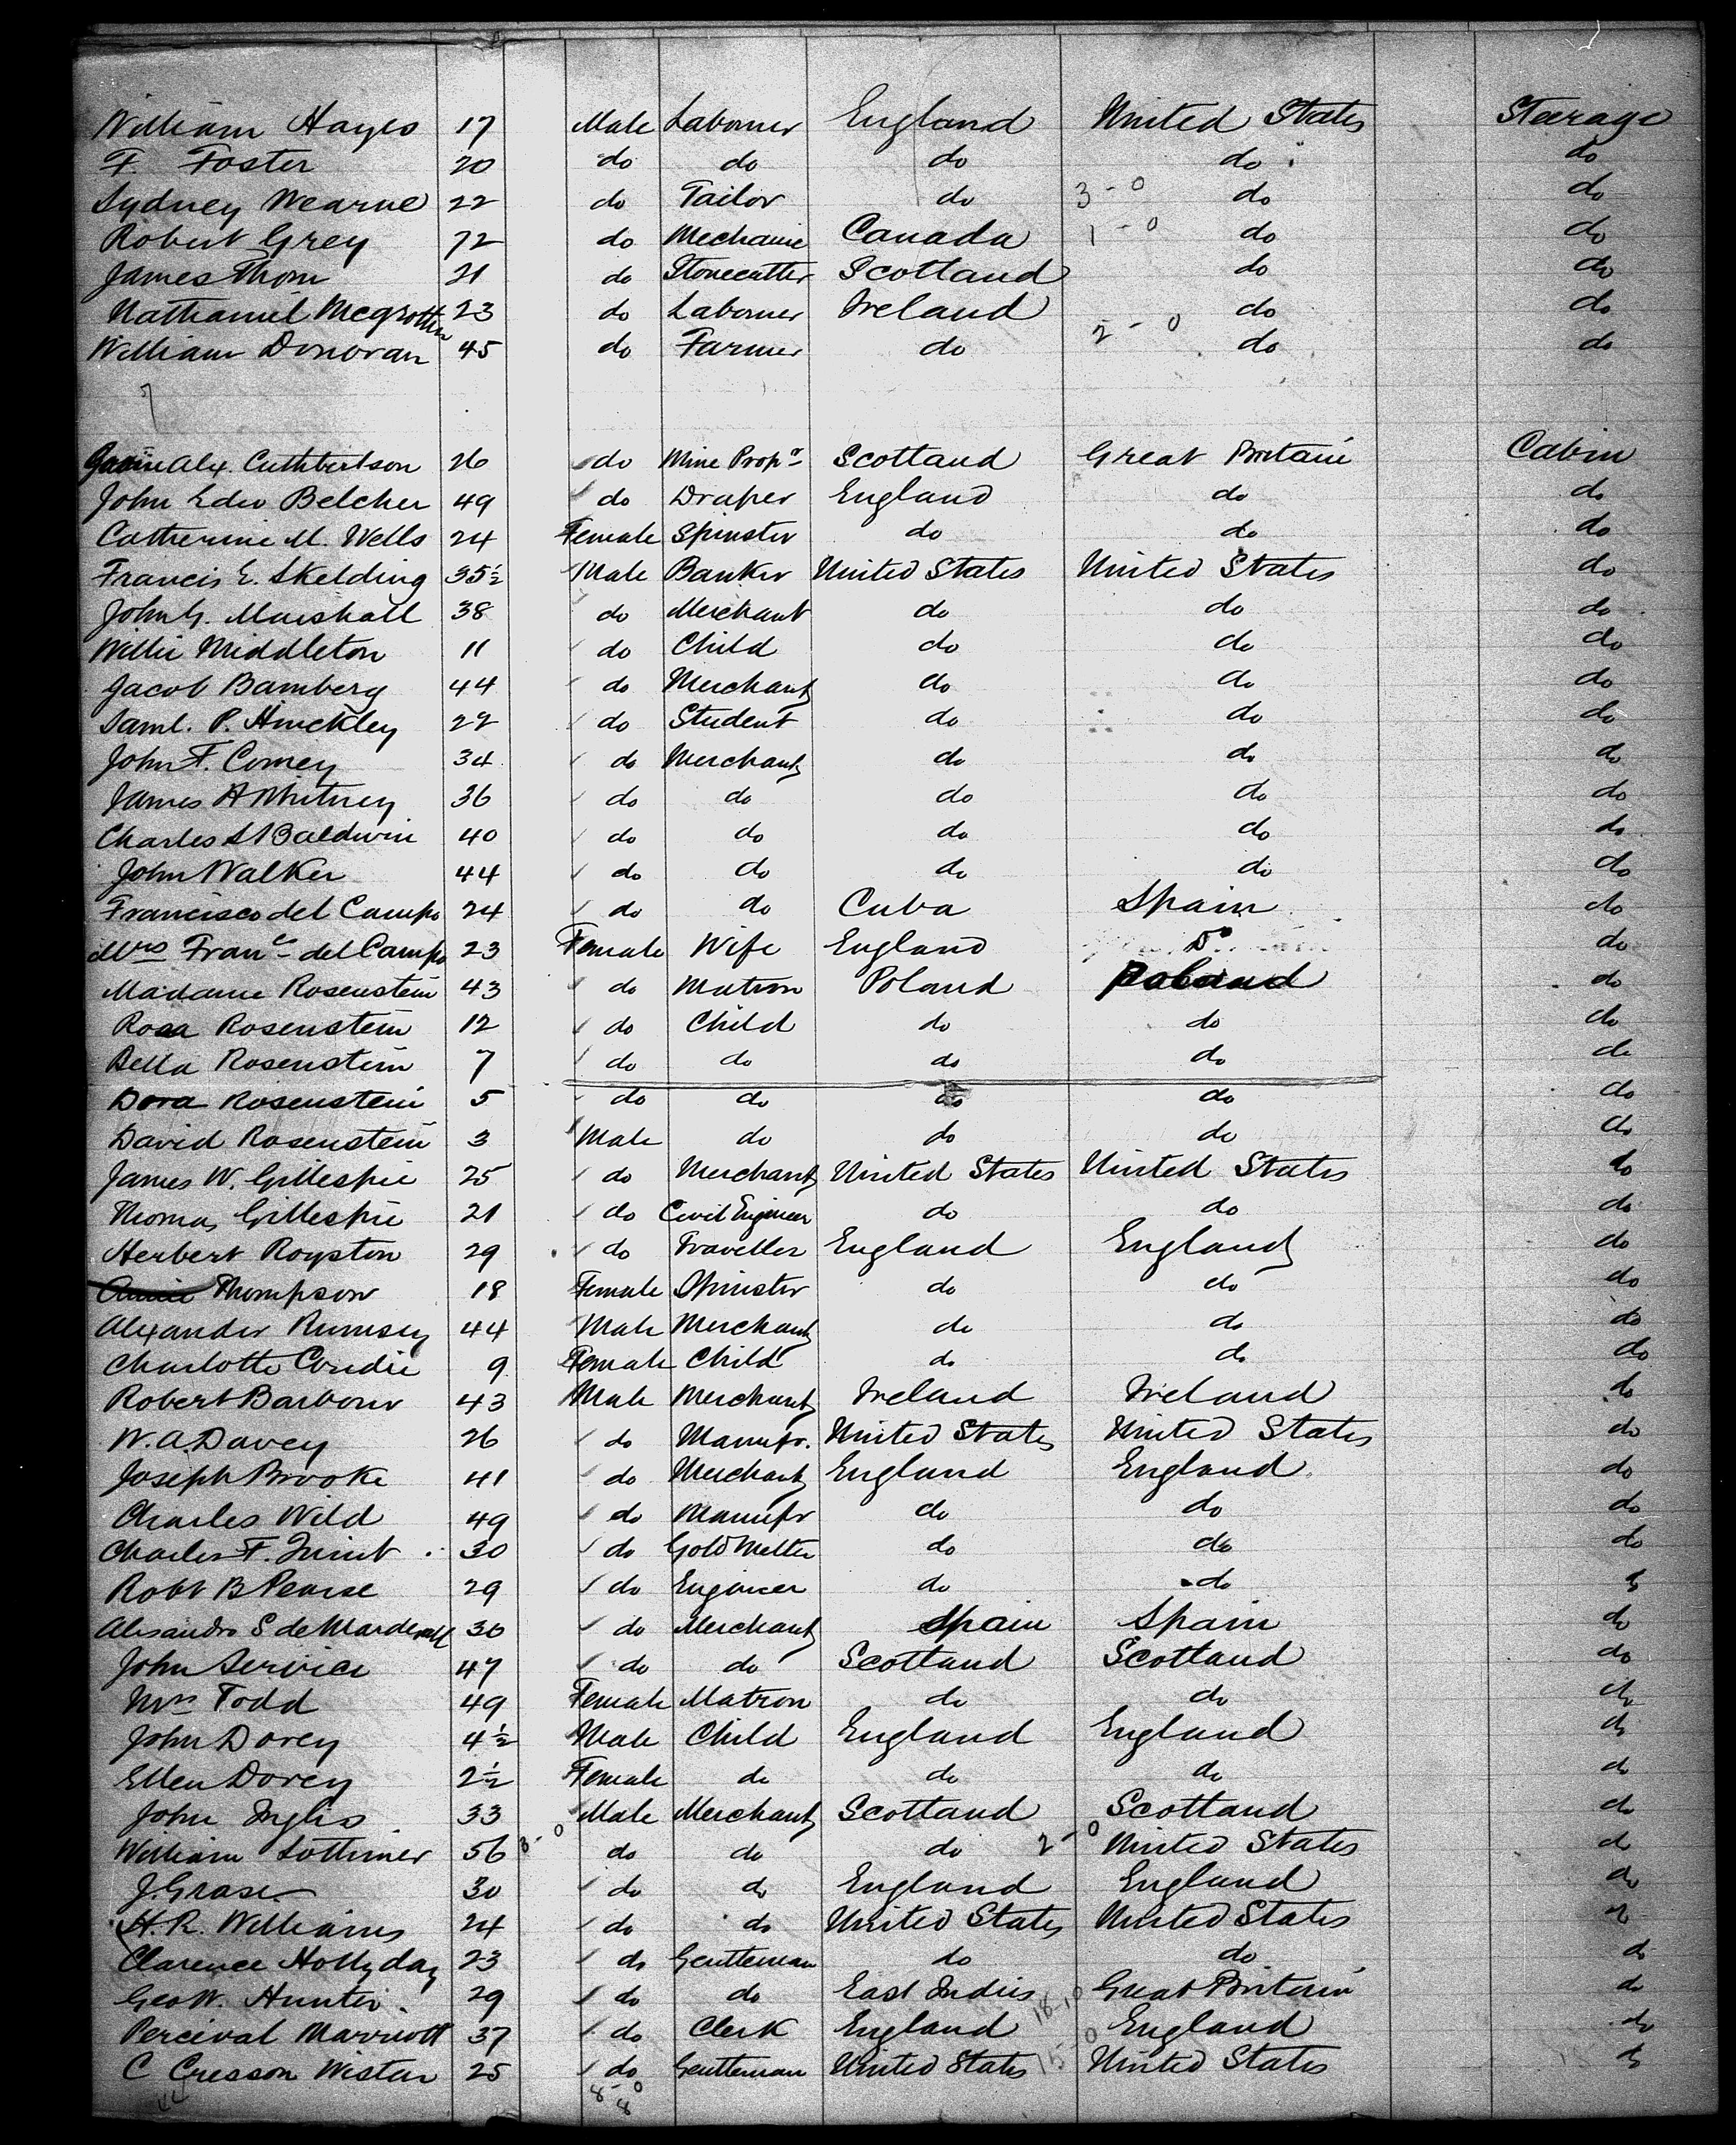 William Hayes 17 Male Laborer England United States Steerage
F. Foster 20 do do do do do
Sydney Wearne 22 do Tailor do 3-0 do do
Robert Grey 72 do Mechanic Canada 1-0 do do
James Thom 21 do Stonecutter Scotland do do
Nathaniel McGrotten 23 do Laborer Ireland do do
William Donovan 45 do Farmer do 2-0 do do
7
Gavin Alex. Cuthbertson 26 do Mine Propr Scotland Great Britain Cabin
John Edw Belcher 49 do Draper England do do
Catherine M. Wells 24 Female Spinster do do do
Francis E. Skelding 35½ Male Banker United States United States do
John G. Marshall 38 do Merchant do do do
Willie Middleton 11 do Child do do do
Jacob Bamberg 44 do Merchant do do do
Saml. P. Hinckley 22 do Student do do do
John F. Comey 34 do Merchant do do do
James A Whitney 36 do do do do do
Charles S Baldwin 40 do do do do do
John Walker 44 do do do do do
Francisco del Campo 24 do do Cuba Spain do
Mrs Franc del Campo 23 Female Wife England Do do
Madame Rosenstein 43 do Matron Poland Poland do
Rosa Rosenstein 12 do Child do do do
Bella Rosenstein 7 do do do do do
Dora Rosenstein 5 do do do do do
David Rosenstein 3 Male do do do do
James W. Gillespie 25 do Merchant United States United States do
Thomas Gillespie 21 do Civil Engineer do do do
Herbert Royston 29 do Traveller England England do
Annie Thompson 18 Female Spinster do do do
Alexander Rumsey 44 Male Merchant do do do
Charlotte Coridie 9 Female Child do do do
Robert Barbour 43 Male Merchant Ireland Ireland do
W. A. Davey 26 do Manufr. United States United States do
Joseph Brooke 41 do Merchant England England do
Charles Wild 49 do Manufr do do do
Charles F. 30 do Gold Melter do do do
Robt B Pearse 29 do Engineer do do do
Alisandro S de 30 do Merchant Spain Spain do
John Service 47 do do Scotland Scotland do
Mrs Todd 49 Female Matron do do do
John Dovey 4½ Male Child England England do
Ellen Dovey 2½ Female do do do do
John Inglis 33 Male Merchant Scotland Scotland do
William Lottimer 56 3-0 do do do 2-0 United States do
J. Graser 30 do do England England do
H. R. Williams 24 do do United States United States do
Clarence Hollyday 23 do Gentleman do do do
Geo W. Hunter 29 do do East Indies 18-10 Great Britain do
Percival Marriott 37 do Clerk England England do
C Cresson Wistar 25 do Gentleman United States 15-0 United States do
8-0
8